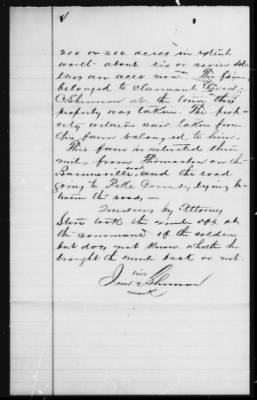 200 or 300 acres in extent
worth about six or seven dol
lars an acre now. The farm
belonged to claimant
at the time this
property was taken. The prop
erty witness saw taken from
this farm belonged to him.
This farm is situated three
miles from Thomaston on the
Barnesville and the road
going to Pike County, lying be
tween the roads,—
Questions by Attorney
Steve took the mule off at
the command of the soldiers
but does not know whether he
brought the mule back or not.
his
Shannon
mark